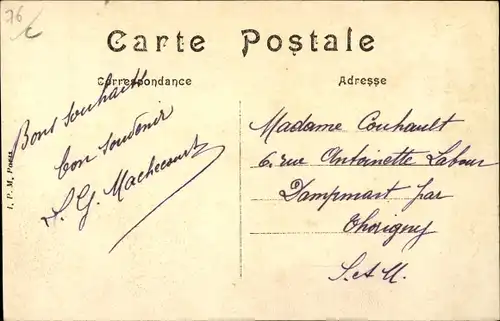 76
Carte Postale
Correspondance
Adresse
Bons souhaits
bon souvenir
S. G. Machecourt
Madame Couhault
6. rue Antoinette Labour
Dampmart par
Thorigny
S. et M.
I. P. M. Paris